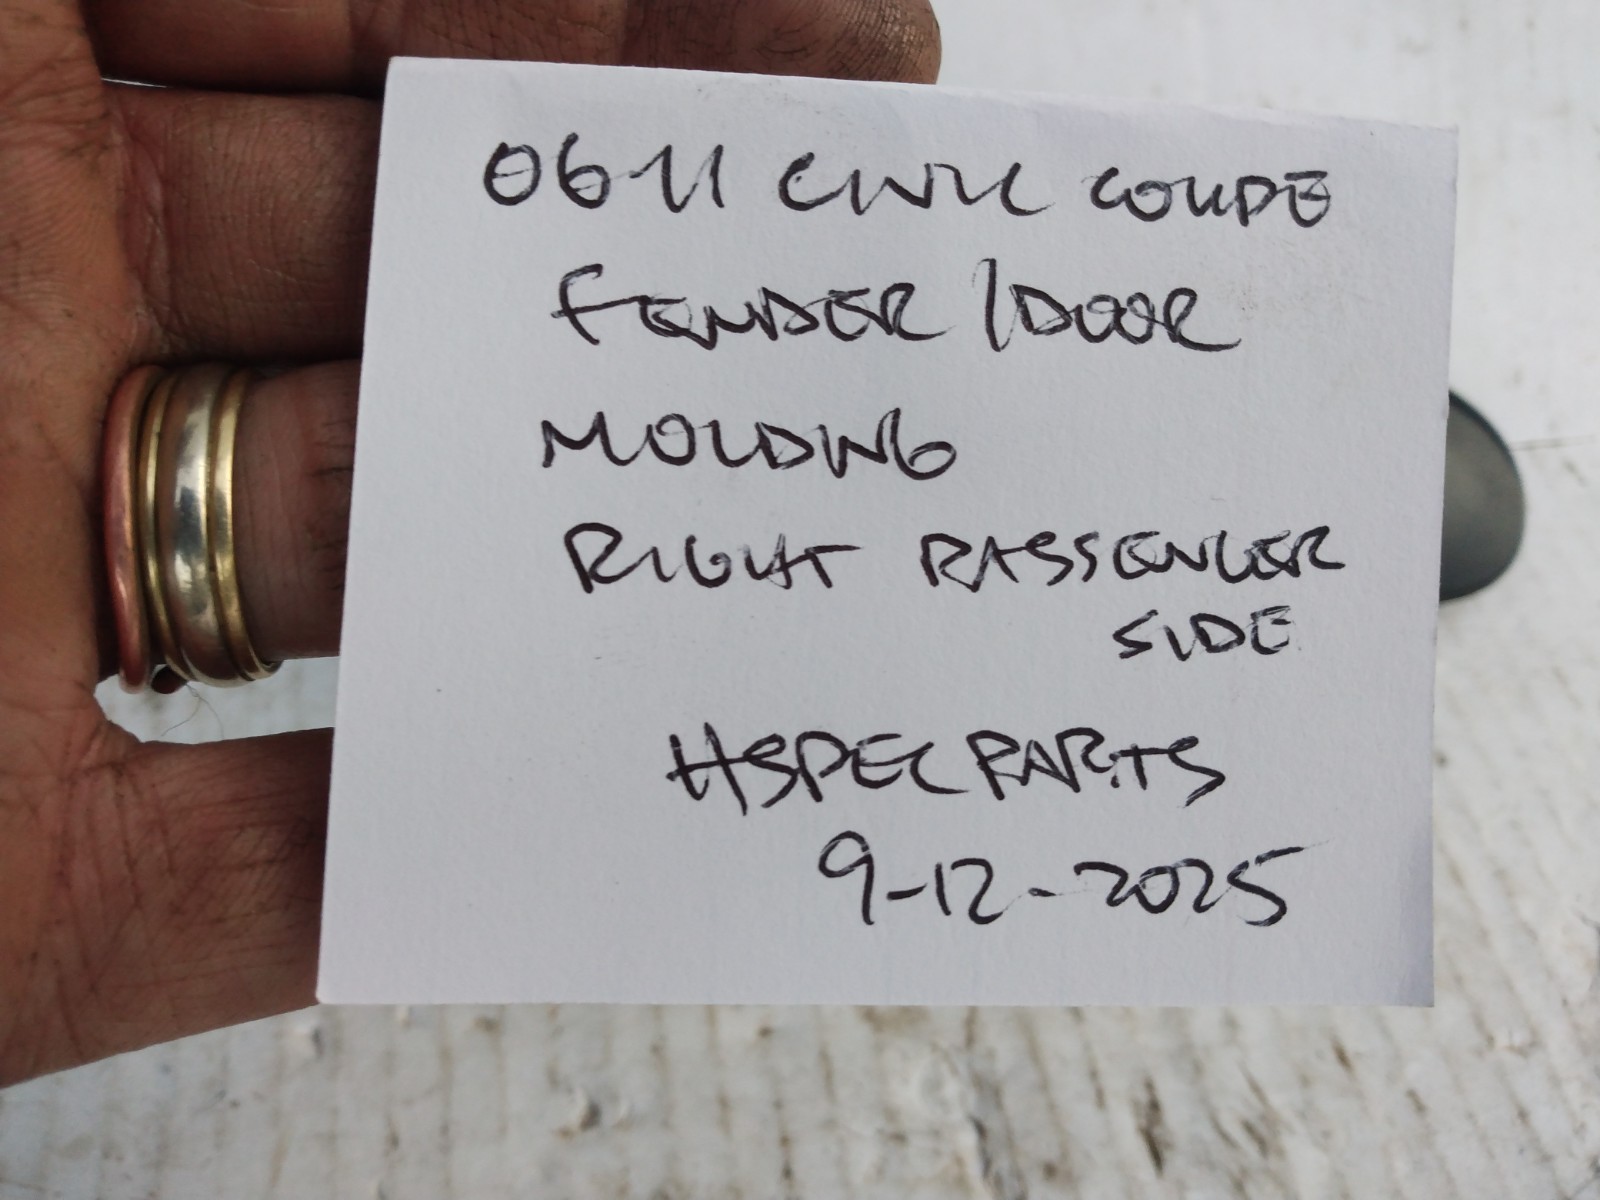 06-11 CIVIC COUPE
FENDER/DOOR
MOLDING
RIGHT PASSENGER
SIDE
HSPECPARTS
9-12-2025